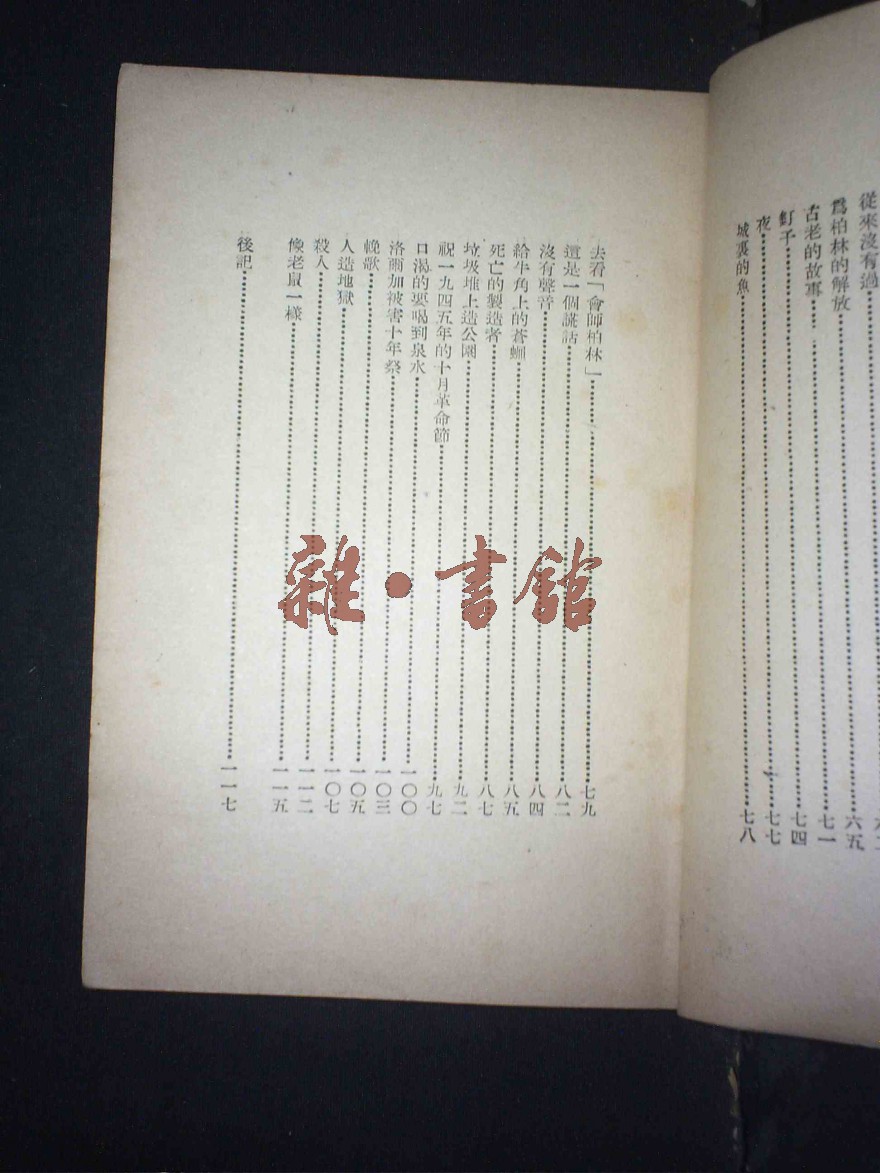 從來沒有過
爲柏林的解放 六五
古老的故事 七一
釘子 七四
夜 七七
城裏的魚 七八
去看「會師柏林」 七九
這是一個謊話 八二
沒有聲音 八四
給牛角上的蒼蠅 八五
死亡的製造者 八七
垃圾堆上造公園 九二
祝一九四五年的十月革命節 九七
口渴的要喝到泉水 一〇〇
洛爾加被害十年祭 一〇三
輓歌 一〇五
人造地獄 一〇七
殺人 一一二
像老鼠一樣 一一五
後記 一一七
雜·書館